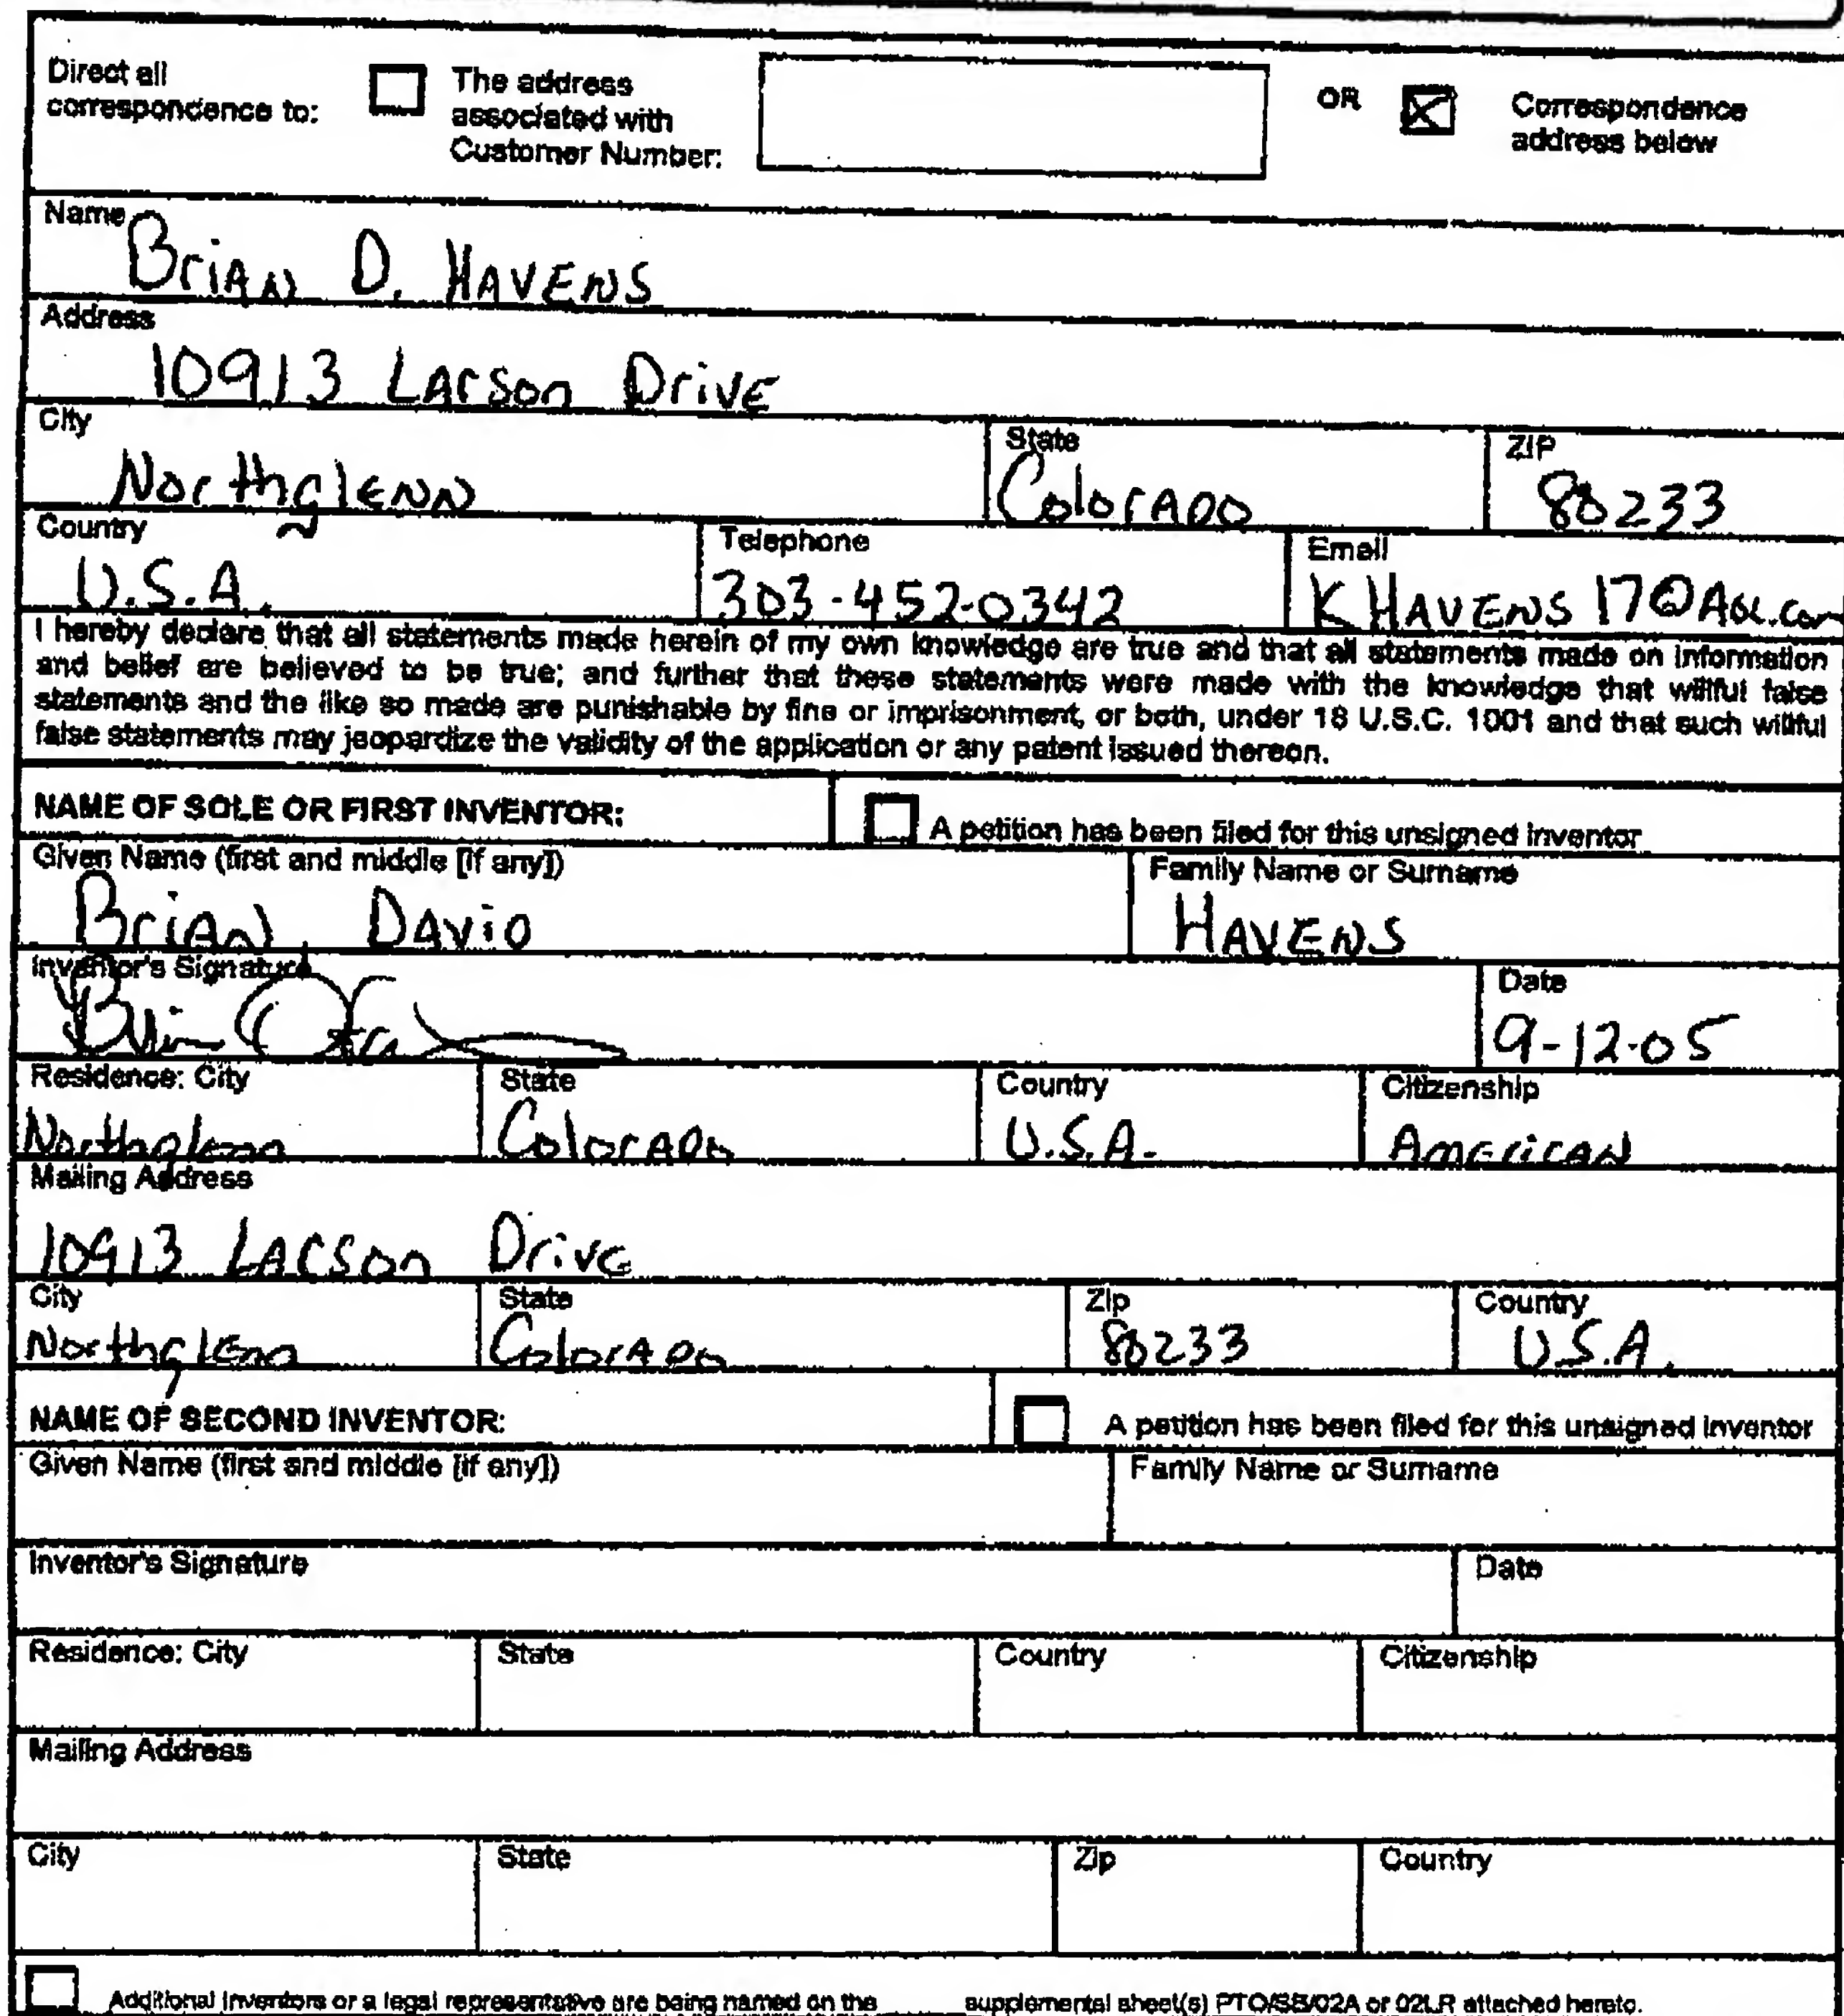 Direct all correspondence to: The address associated with Customer Number: OR Correspondence address below
Name
Brian D. Havens
Address
10913 Larson Drive
City State ZIP
Northglenn Colorado 80233
Country Telephone Email
U.S.A. 303-452-0342 KHavens17@AOL.com
I hereby declare that all statements made herein of my own knowledge are true and that all statements made on information
and belief are believed to be true; and further that these statements were made with the knowledge that willful false
statements and the like so made are punishable by fine or imprisonment, or both, under 18 U.S.C. 1001 and that such willful
false statements may jeopardize the validity of the application or any patent issued thereon.
NAME OF SOLE OR FIRST INVENTOR: A petition has been filed for this unsigned inventor
Given Name (first and middle [if any]) Family Name or Surname
Brian David Havens
Inventor's Signature Date
9-12-05
Residence: City State Country Citizenship
Northglenn Colorado U.S.A. American
Mailing Address
10913 Larson Drive
City State Zip Country
Northglenn Colorado 80233 U.S.A.
NAME OF SECOND INVENTOR: A petition has been filed for this unsigned inventor
Given Name (first and middle [if any]) Family Name or Surname
Inventor's Signature Date
Residence: City State Country Citizenship
Mailing Address
City State Zip Country
Additional inventors or a legal representative are being named on the ____ supplemental sheet(s) PTO/SB/02A or 02LR attached hereto.